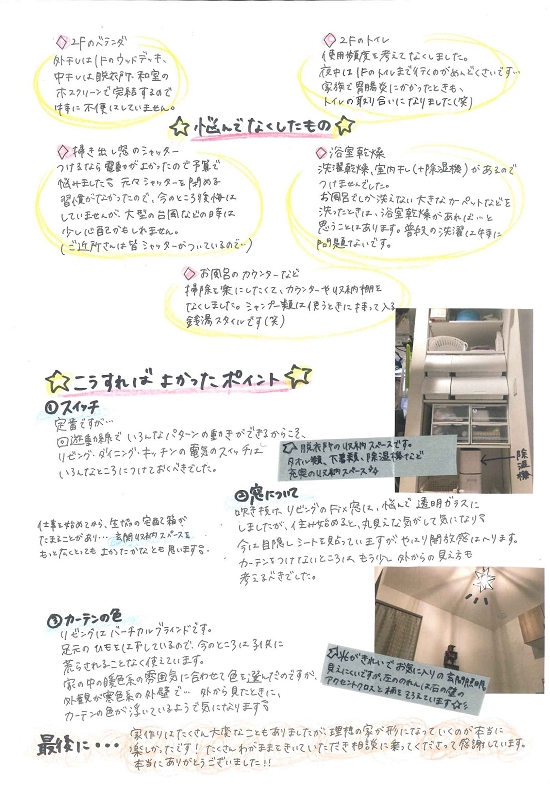 ◇2Fのベランダ
外干しは1Fのウッドデッキ、
中干しは脱衣所、和室の
ホスクリーンで完結するので
特に不便はしていません。
◇2Fのトイレ
使用頻度を考えてなくしました。
夜中は1Fのトイレまで行くのがめんどくさいです…
家族で胃腸炎にかかったときも、
トイレの取り合いになりました(笑)
☆悩んでなくしたもの☆
◇掃き出し窓のシャッター
つけるなら電動がよかったので予算で
悩みました。元々シャッターを閉める
習慣がなかったので、今のところ後悔は
していませんが、大型の台風などの時は
少し心配かもしれません。
(ご近所さんは皆シャッターがついているので…)
◇浴室乾燥
洗濯乾燥、室内干し(+除湿機)があるので
つけませんでした。
お風呂でしか洗えない大きなカーペットなどを
洗ったときは、浴室乾燥があれば…と
思うことはあります。普段の洗濯は特に
問題ないです。
◇お風呂のカウンターなど
掃除を楽にしたくて、カウンターや収納棚を
なくしました。シャンプー類は使うときに持って入る
銭湯スタイルです(笑)
☆こうすればよかったポイント☆
①スイッチ
定番ですが…
回遊動線でいろんなパターンの動きができるからこそ、
リビング・ダイニング・キッチンの電気のスイッチは
いろんなところにつけておくべきでした。
脱衣所の収納スペースです。
タオル類、下着類、除湿機など
充実の収納スペース
除湿機
仕事を始めてから、生協の宅配箱が
たまることがあり… 玄関収納スペースを
もっとなくとってもよかったかなとも思います。
②窓について
吹き抜け、リビングのFix窓は、悩んで透明ガラスに
しましたが、住み始めると、丸見えな気がして気になり
今は目隠しシートを貼っていますがやはり開放感はへります。
カーテンをつけないところは、もう少し外からの見え方も
考えるべきでした。
③カーテンの色
リビングはバーチカルブラインドです。
足元のひもをはずしているので、今のところは子供に
荒らされることなく使えています。
家の中の暖色系の雰囲気に合わせて色を選んだのですが、
外観が寒色系の外壁で… 外から見たときに、
カーテンの色が浮いているようで気になります
☆光がきれいでお気に入りの玄関照明
見えにくいですが、左ののれんは右の壁の
アクセントクロスと柄をそろえています☆
最後に・・・
家作りはたくさん大変なこともありましたが、理想の家が形になっていくのが本当に
楽しかったです! たくさんわがままきいていただき相談に乗ってくださって感謝しています。
本当にありがとうございました!!